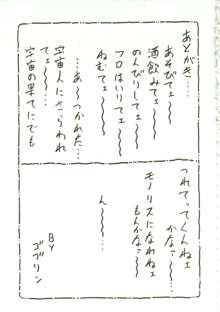 あとがき……
あそびてェ〜〜〜〜
酒飲みてェ〜〜〜〜
のんびりしてェ〜〜〜
フロはいりてェ〜〜〜
ねむてェ〜〜〜〜
…あ〜〜つかれた…
宇宙人にさらわれ
てェ〜〜〜…
宇宙の果てにでも
つれてってくんねェ
かな〜〜〜…
モノリスになれねェ
もんかな〜〜〜…
ん〜〜〜〜…
BY
ゴブリン